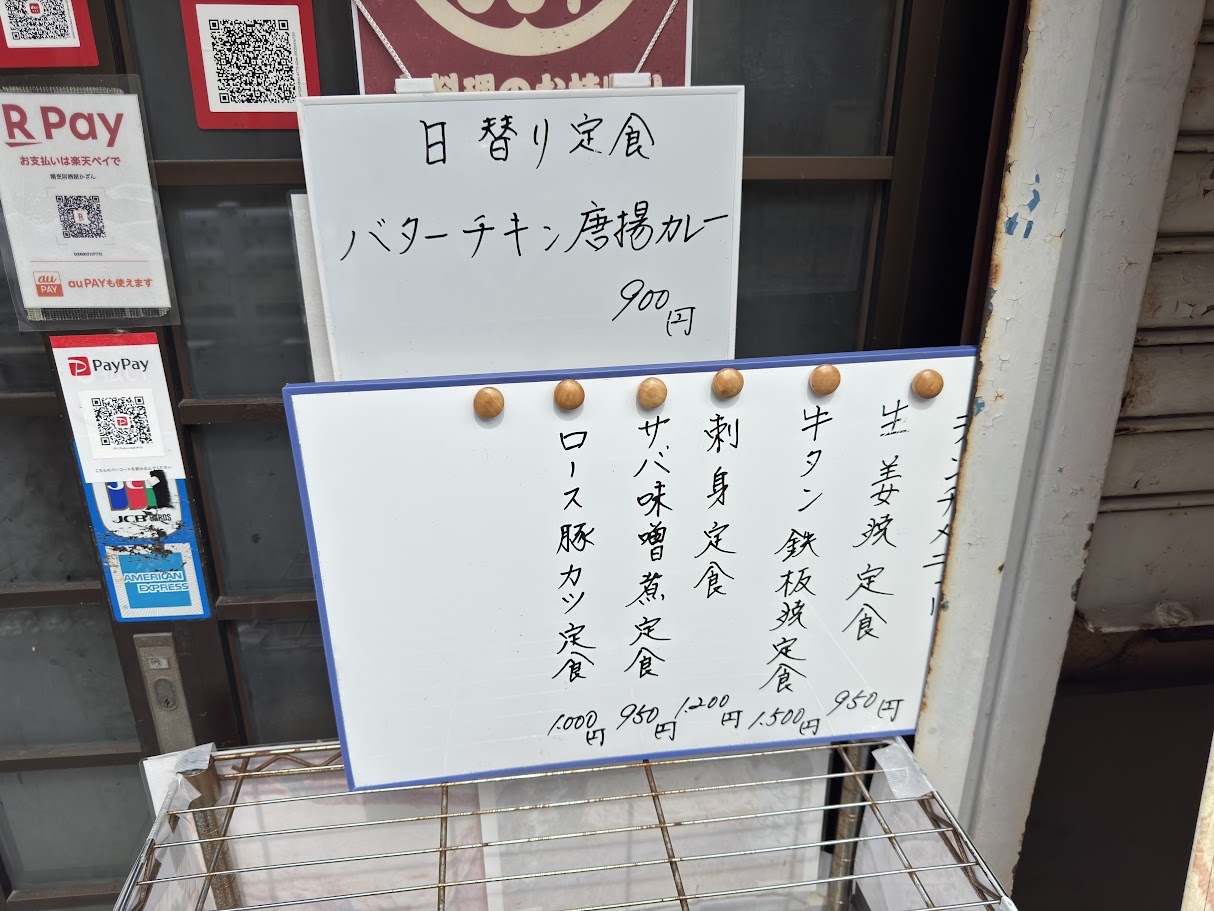 R Pay
お支払いは楽天ペイで
au PAY
au PAYも使えます
PayPay
JCB CARDS
AMERICAN EXPRESS
日替り定食
バターチキン唐揚カレー
900円
ランチメニュー
生姜焼定食 950円
牛タン鉄板焼定食 1.500円
刺身定食 1.200円
サバ味噌煮定食 950円
ロース豚カツ定食 1.000円